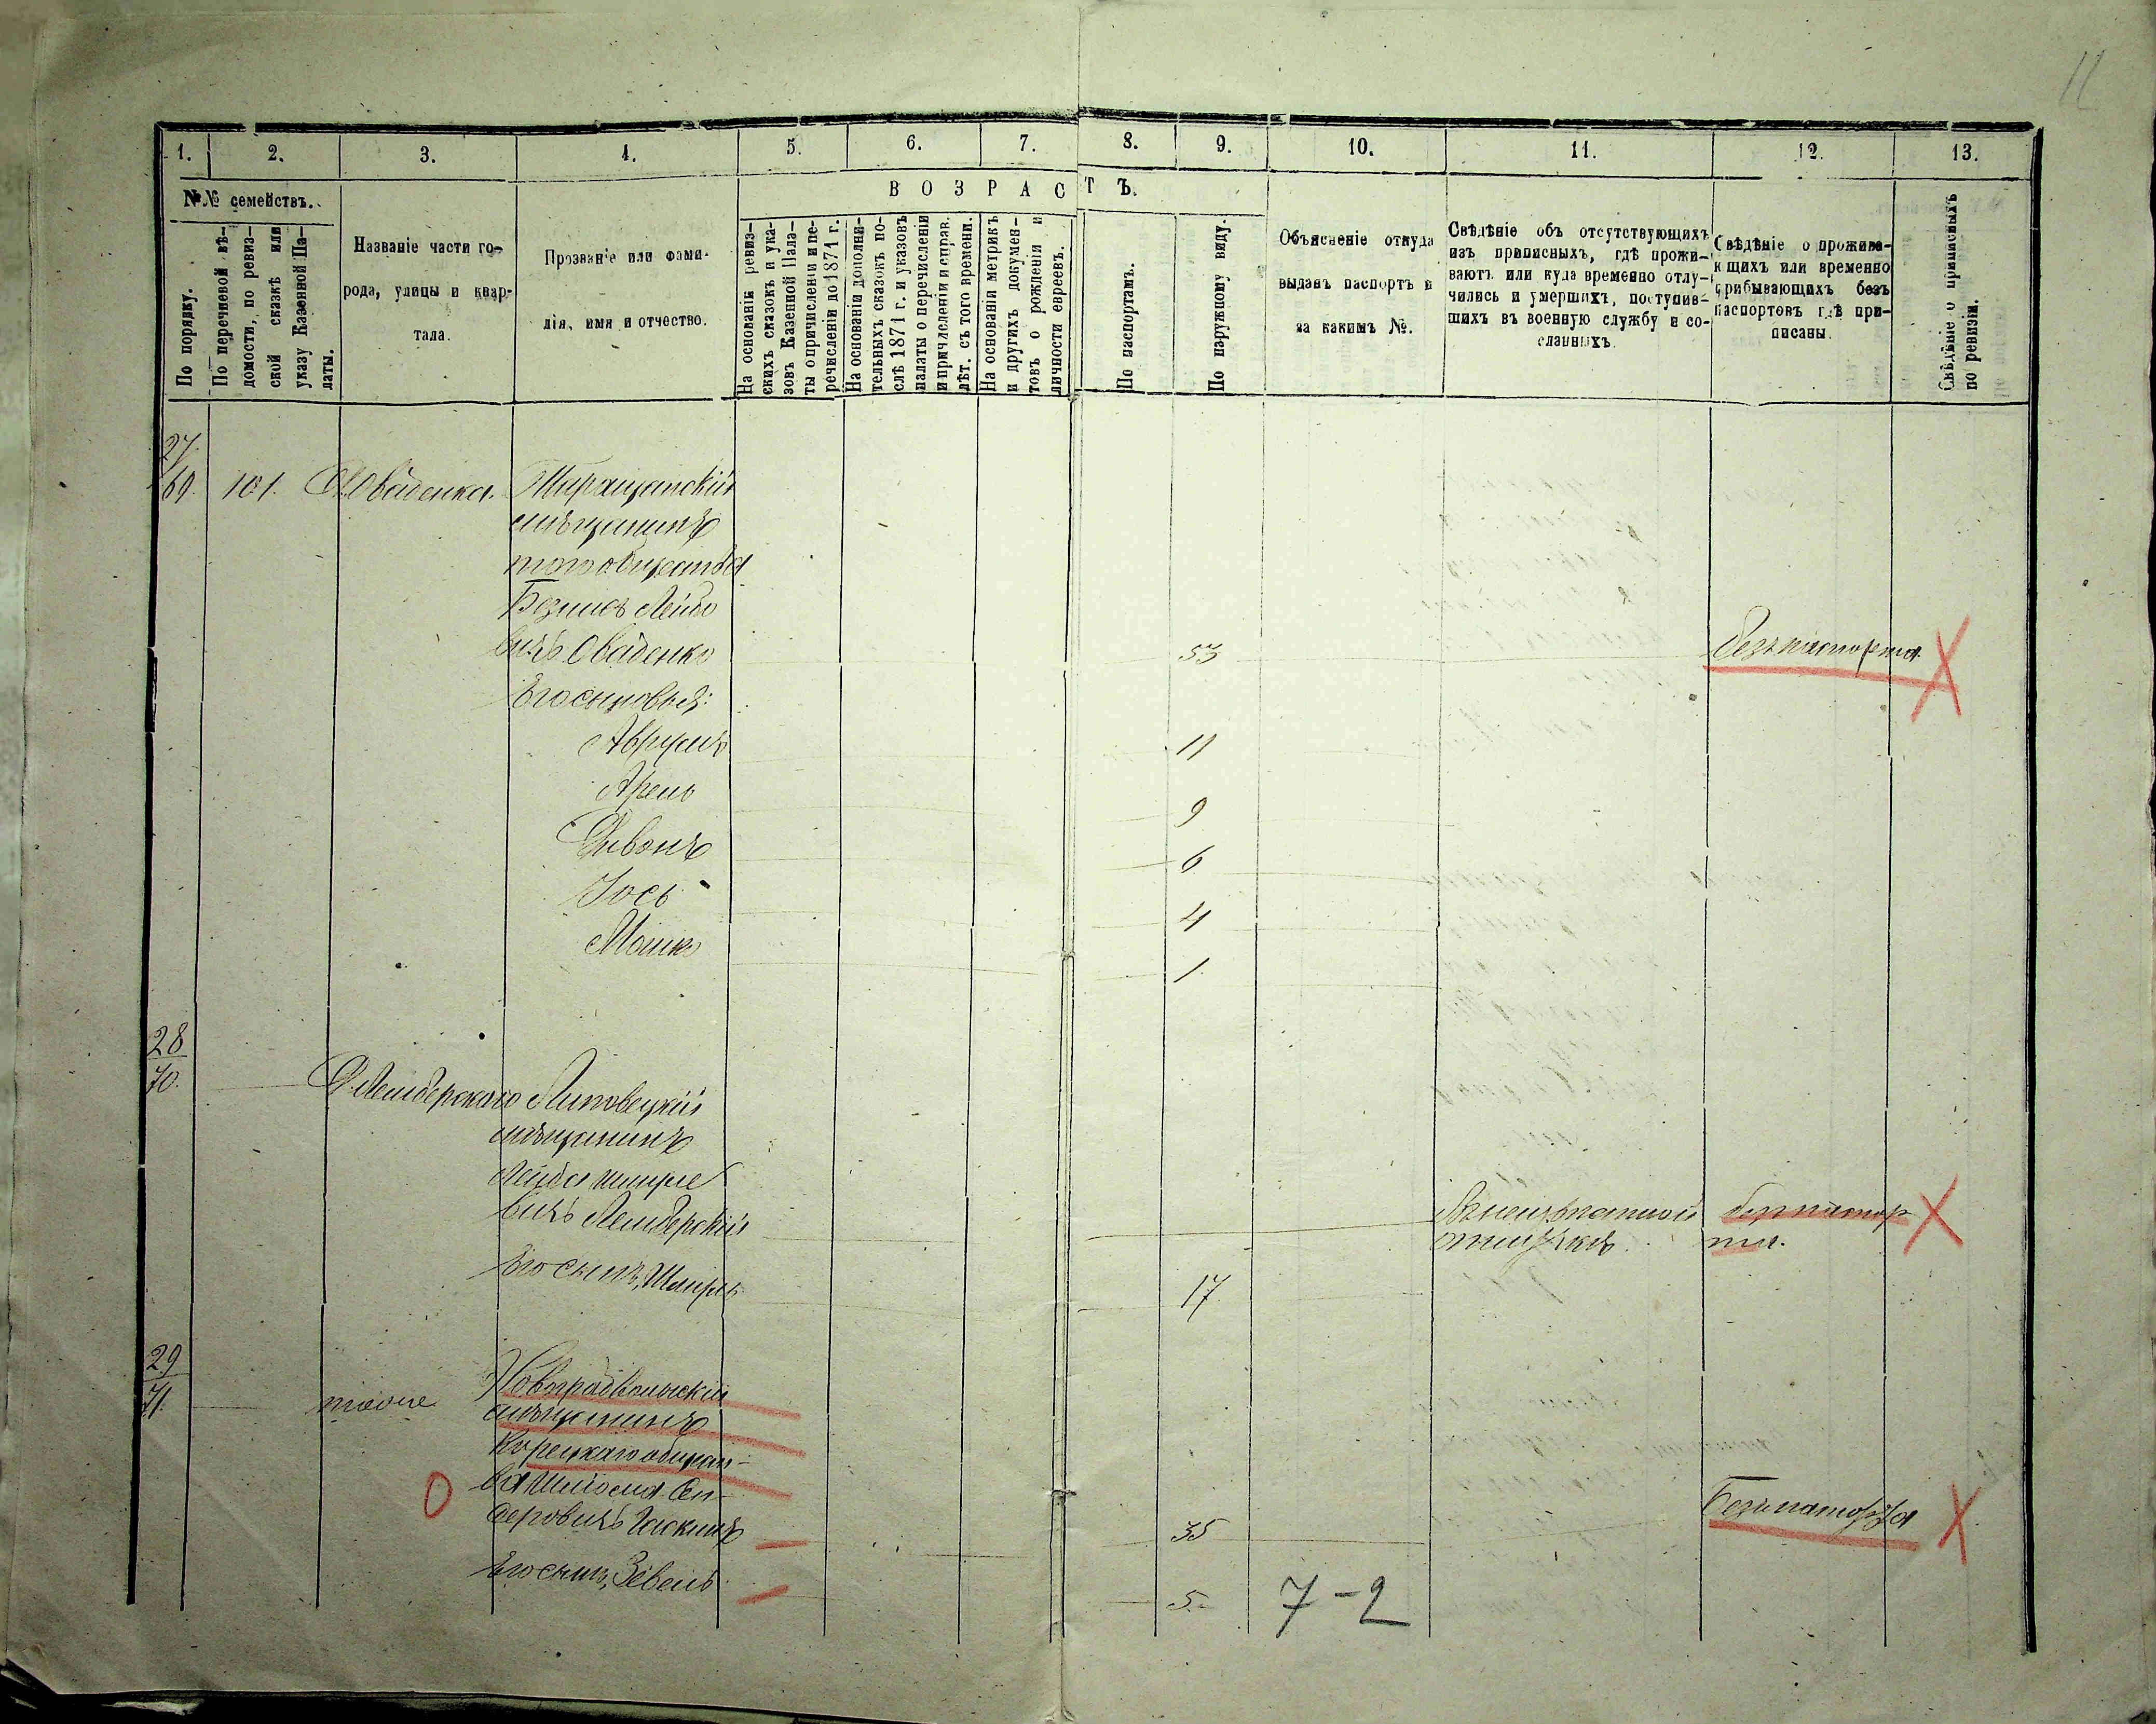 11
1. 2. 3. 4. 5. 6. 7. 8. 9. 10. 11. 12. 13.
№№ семействъ.
ВОЗРАСТЪ.
По порядку.
По перечневой вѣ-
домости, по ревиз-
ской сказкѣ или
указу Казенной Па-
латы.
Названіе части го-
рода, улицы и квар-
тала.
Прозваніе или фами-
лія, имя и отчество.
На основаніи ревиз-
скихъ сказокъ и ука-
зовъ Казенной Пала-
ты о причисленіи и пе-
речисленіи до 1871 г.
На основаніи дополни-
тельныхъ сказокъ по-
слѣ 1871 г. и указовъ
палаты о перечисленіи
и причисленіи и справ.
лѣт. съ того времени.
На основаніи метрикъ
и другихъ докумен-
товъ о рожденіи и
личности евреевъ.
По паспортамъ.
По наружному виду.
Объясненіе откуда
выданъ паспортъ и
за какимъ №.
Свѣдѣніе объ отсутствующихъ
изъ приписныхъ, гдѣ прожи-
ваютъ или куда временно отлу-
чились и умершихъ, поступив-
шихъ въ военную службу и со-
сланныхъ.
Свѣдѣніе о прожива-
ющихъ или временно
прибывающихъ безъ
паспортовъ гдѣ при-
писаны.
Свѣдѣніе о приписныхъ
по ревизіи.
27
69. 101. Д. Сваденка. Таращанскій
мѣщанинъ
того общества
Лейбо
вичъ Сваденко 53 безъ паспорта.
Его сыновья:
Аврумъ 11
Арень 9
6
Іось 4
Мошко 1
28
70. Д. Лемберскаго Липовецкій
мѣщанинъ
Лейба Шмуле
вичъ Лемберскій неизвѣстной безъ паспор
отлучкѣ. та.
Его сынъ, 17
29
71. тоже Новоградволынскій
мѣщанинъ
Корецкаго общест-
ва Шліома Сен-
деровичъ 35 Безъ паспорта
Его сынъ, Зевель 5 7-2